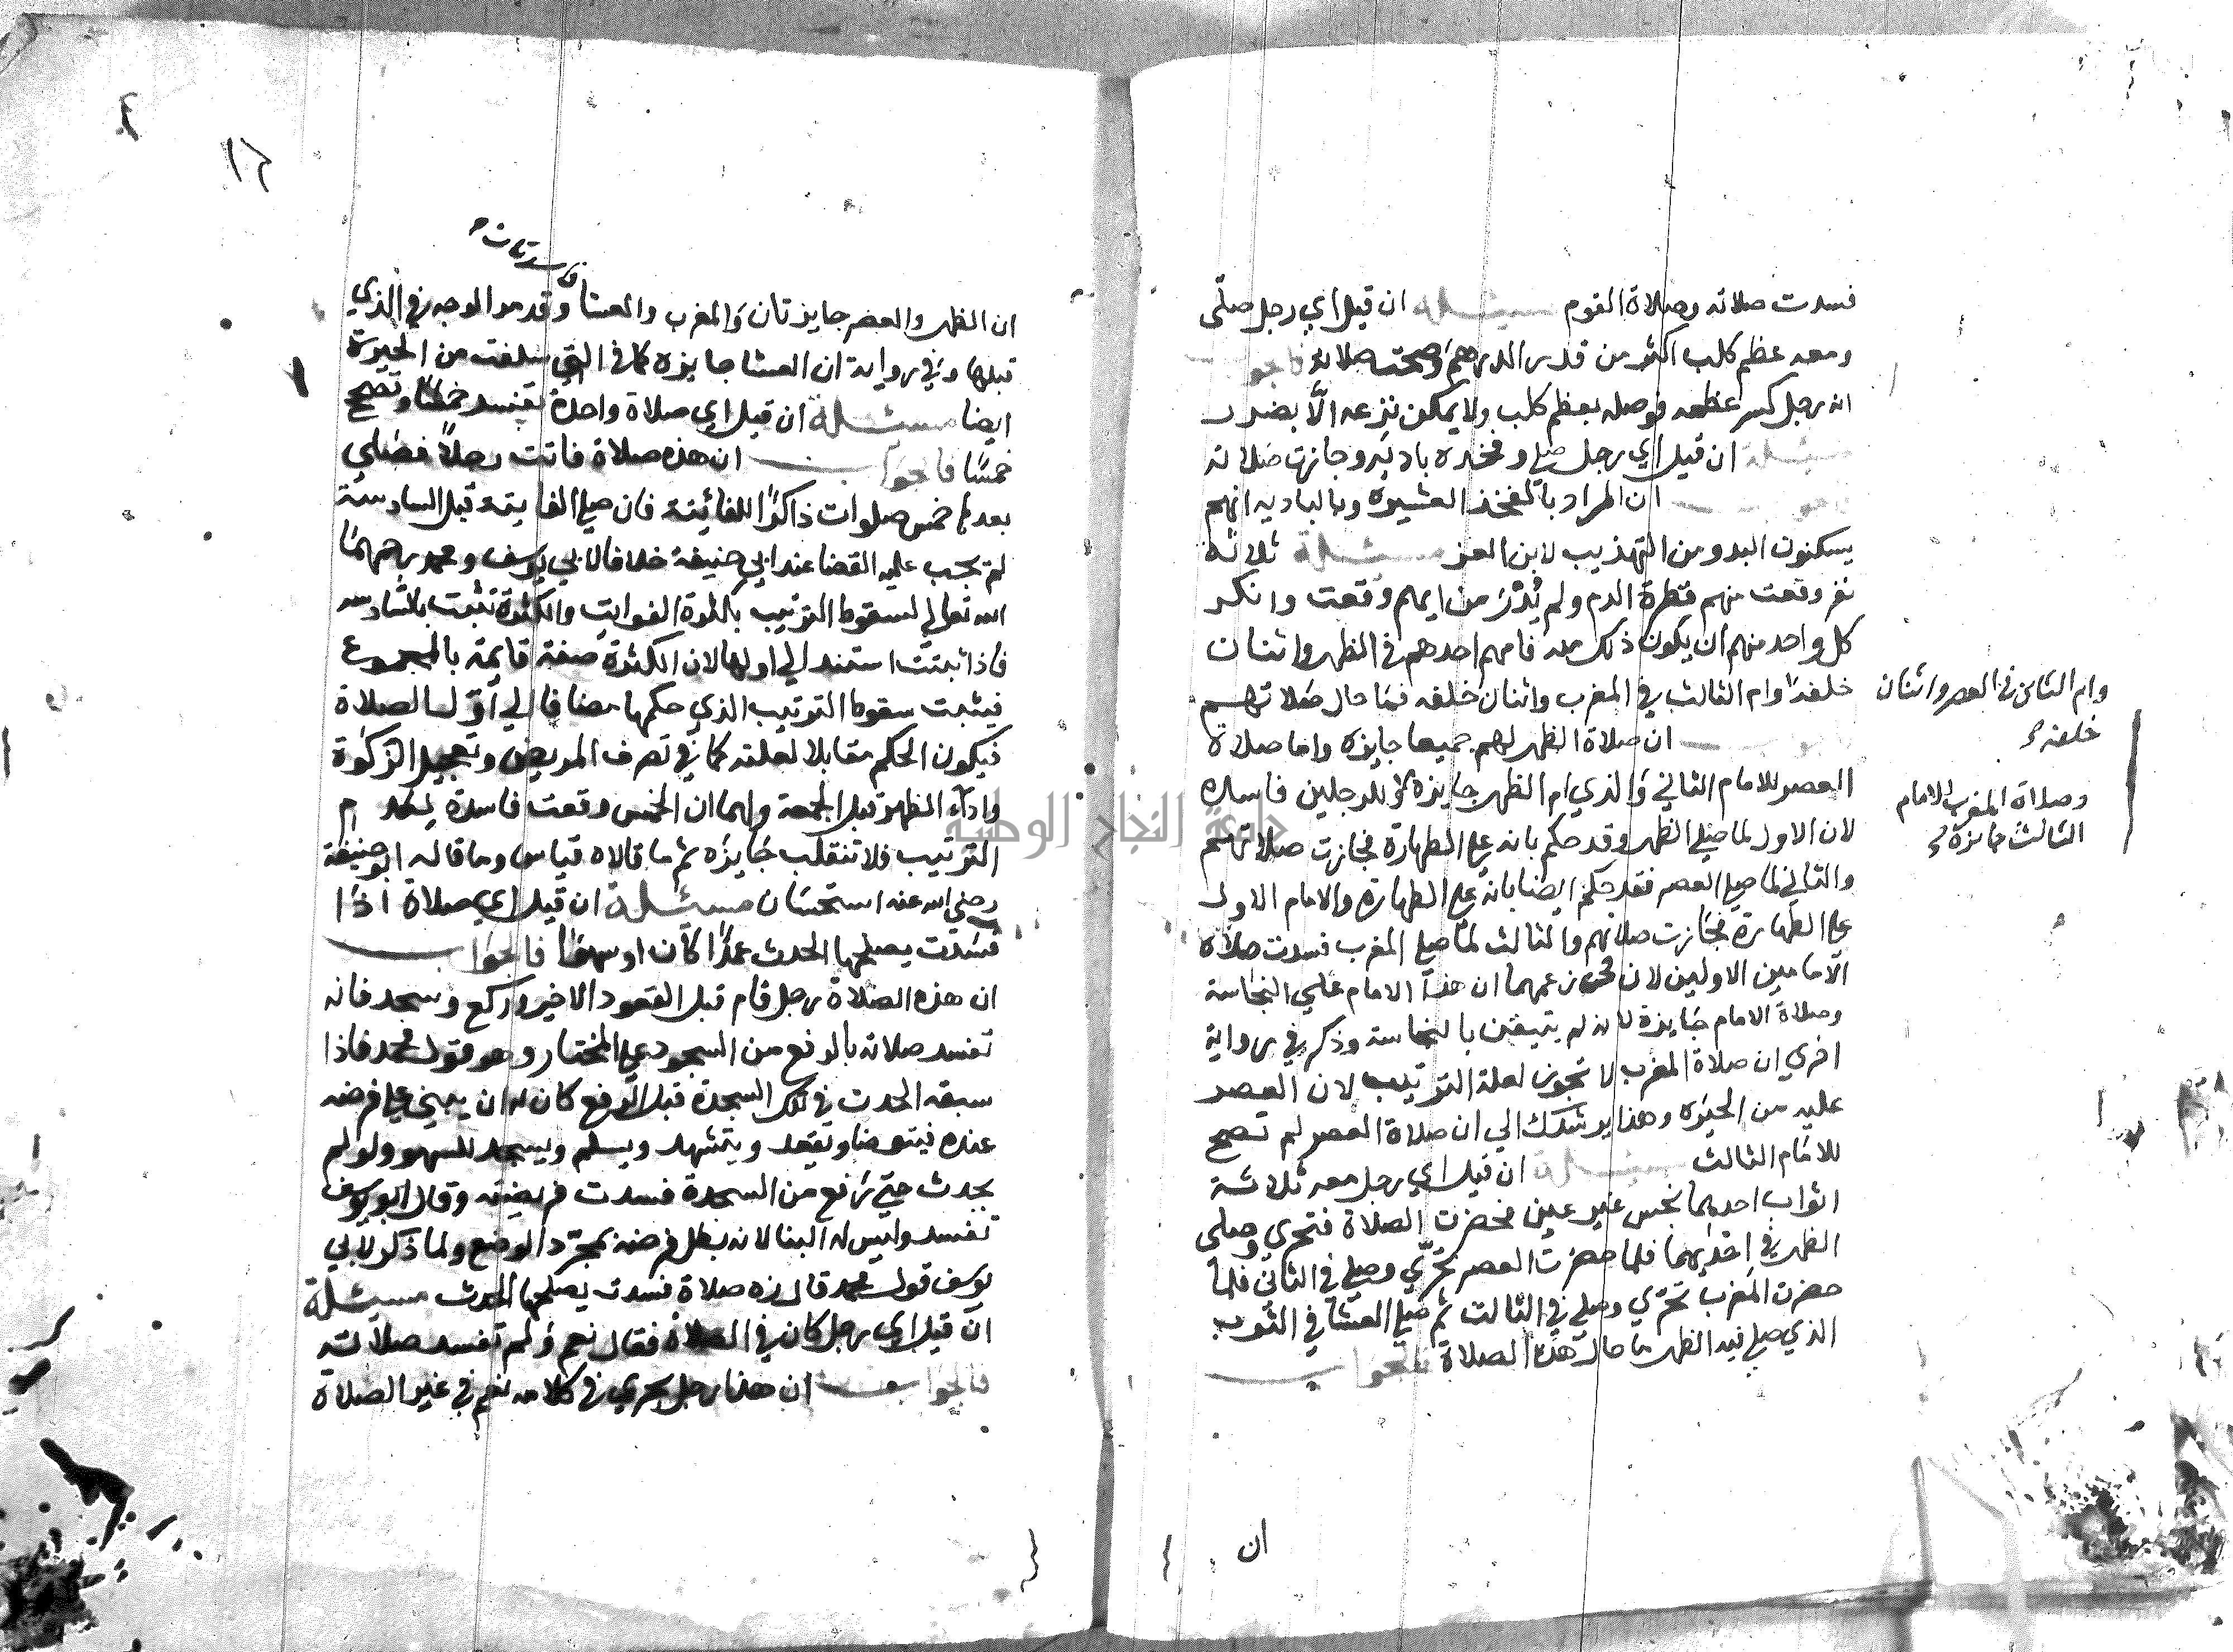 فسدت صلاته وصلاة القوم مسئلة ان قيل اي رجل صلّى
ومعه عظم كلب اكثر من قدر الدرهم وصحت صلاته فالجواب
انه رجل كسر عظمه فوصله بعظم كلب ولا يمكن نزعه الّا بضرر
مسئلة ان قيل اي رجل صلي وفخذه باديه وجازت صلاته
فالجواب ان المراد بالفخذ العشيرة وبالباديه انهم
يسكنون البدو من التهذيب لابن العز مسئلة ثلاثة
نفر وقعت منهم قطرة الدم ولم يُدْرَ من ايهم وقعت وانكر
كل واحد منهم ان يكون ذلك منه فامهم احدهم في الظهر واثنان
خلفه وام الثالث في المغرب واثنان خلفه فما حال صلاتهم
وام الثاني في العصر واثنان
خلفه صح
ان صلاة الظهر لهم جميعا جايزه واما صلاة
العصر للامام الثاني والذي ام الظهر جايزة وللرجلين فاسده
وصلاة المغرب للامام
الثالث جايزة صح
لان الاول لما صلي الظهر وقد حكم بانه علي الطهارة فجازت صلاتهم
والثاني لما صلي العصر فقد حكم ايضا بانه علي الطهارة والامام الاول
علي الطهارة فجازت صلاتهم والثالث لما صلي المغرب فسدت صلاة
الامامين الاولين لان في زعمهما ان هذا الامام علي النجاسة
وصلاة الامام جايزة لانه لم يتيقن بالنجاسة وذكر في رواية
اخري ان صلاة المغرب لا تجوز لعلة الترتيب لان العصر
عليه من الحيرة وهذا يرشدك الي ان صلاة العصر لم تصح
للامام الثالث مسئلة ان قيل اي رجل معه ثلاثة
اثواب احدهما نجس غير عين فحضرت الصلاة فتحري وصلى
الظهر في احديهما فلما حضرت العصر تحرّي وصلي في الثاني فلما
حضرت المغرب تحرّي وصلي في الثالث ثم صلي العشا في الثوب
الذي صلي فيه الظهر ما حال هذه الصلاة فالجواب
ان
١٢
فاسدتان صح
ان الظهر والعصر جايزتان والمغرب والعشا وقد مر الوجه في الذي
قبلها وفي رواية ان العشا جايزه كما في التي سلفت من الحيرة
ايضا مسئلة ان قيل اي صلاة واحدة تفسد خمسًا وتصحح
خمسًا فالجواب ان هذه صلاة فاتت رجلاً فصلي
بعدها خمس صلوات ذاكرًا للفائتة فان صلي الفايتة قبل السادسة
لم يجب عليه القضا عند ابي حنيفة خلافا لابي يوسف ومحمد رحمهما
الله تعالي لسقوط الترتيب بكثرة الفوايت والكثرة تثبت بالسادسه
فاذا ثبتت استند الي اولها لان الكثرة صفة قايمة بالمجموع
فيثبت سقوط الترتيب الذي حكمها مضافا الي اول الصلاة
فيكون الحكم مقابلا لعلته كما في تصرف المريض وتعجيل الزكوة
واداء الظهر قبل الجمعة ولهما ان الخمس وقعت فاسدة لعدم
الترتيب فلا تنقلب جايزه ثم ما قالاه قياس وما قاله ابو حنيفة
رضي الله عنه استحسان مسئلة ان قيل اي صلاة اذا
فسدت يصلحها الحدث عمدًا كان او سهوًا فالجواب
ان هذه الصلاة رجل قام قبل القعود الاخير وركع وسجد فانه
تفسد صلاته بالرفع من السجود علي المختار وهو قول محمد فاذا
سبقه الحدث في تلك السجدة قبل الرفع كان له ان يبني علي فرضه
عنده فيتوضا ويقعد ويتشهد ويسلم ويسجد للسهو ولو لم
يحدث حتي رفع من السجدة فسدت فريضته وقال ابو يوسف
تفسد وليس له البنا لانه بطل فرضه بمجرّد الوضع ولما ذكر لابي
يوسف قول محمد قال زه صلاة فسدت يصلحها الحدث مسئلة
ان قيل اي رجل كان في الصلاة فقال نعم ولم تفسد صلاته
فالجواب ان هذا رجل يجري في كلامه نعم في غير الصلاة
جامعة النجاح الوطنية